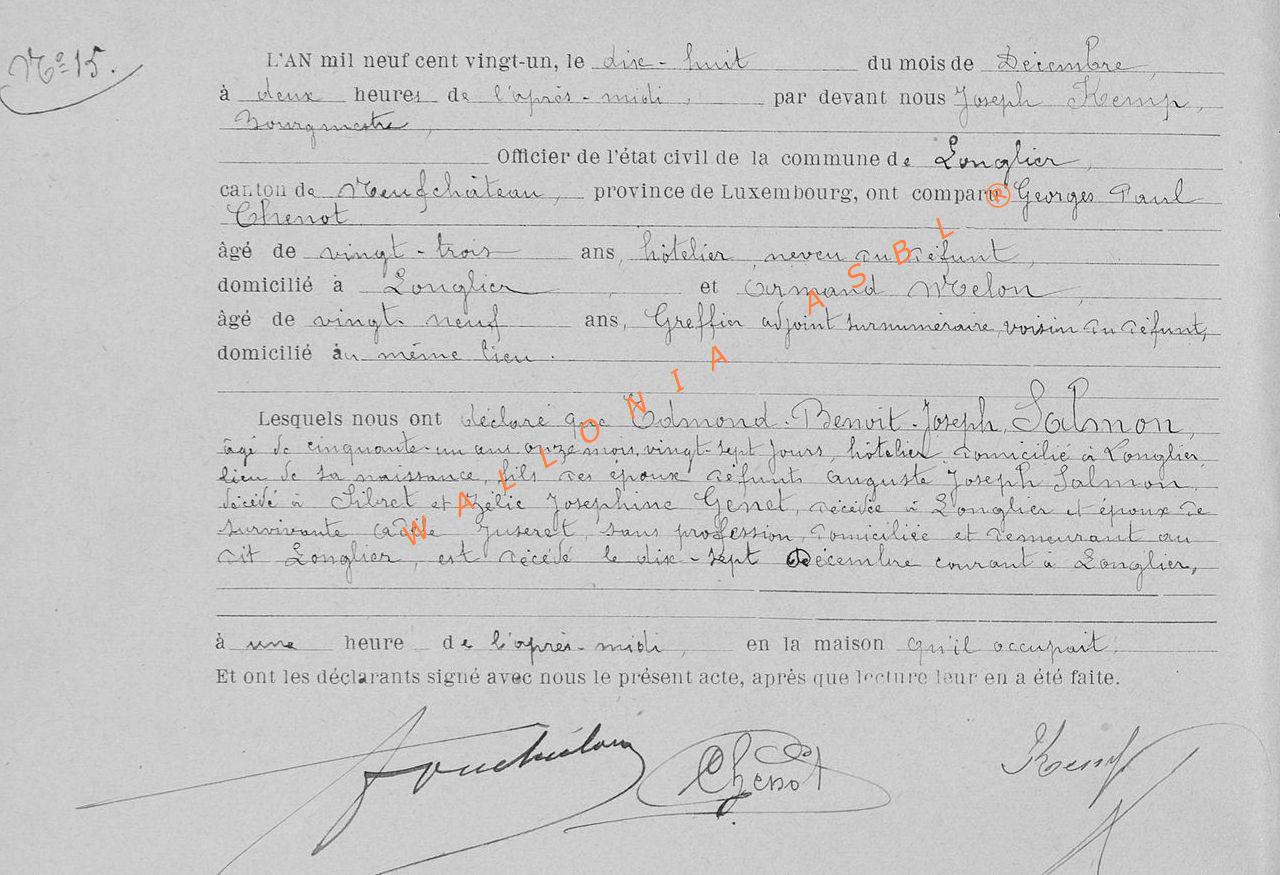 N° 15.
L'AN mil neuf cent vingt-un, le dix-huit du mois de Décembre,
à deux heures de l'après-midi, par devant nous Joseph Kemp,
Bourgmestre,
Officier de l'état civil de la commune de Longlier,
canton de Neufchâteau, province de Luxembourg, ont comparu Georges Paul
Chenot
âgé de vingt-trois ans, hôtelier, neveu du défunt,
domicilié à Longlier, et Armand Melon,
âgé de vingt-neuf ans, Greffier adjoint surnuméraire, voisin du défunt,
domicilié au même lieu.
Lesquels nous ont déclaré que Edmond-Benoit-Joseph Salmon,
âgé de cinquante-un ans onze mois, vingt-sept jours, hôtelier domicilié à Longlier,
lieu de sa naissance, fils des époux défunts Auguste Joseph Salmon,
décédé à Sibret et Zélie Josephine Genet, décédée à Longlier et époux de
survivante Juseret, sans profession, domiciliée et demeurant au
dit Longlier, est décédé le dix-sept Décembre courant à Longlier,
à une heure de l'après-midi, en la maison qu'il occupait.
Et ont les déclarants signé avec nous le présent acte, après que lecture leur en a été faite.
Chenot Kemp
WALLONIA ASBL ®